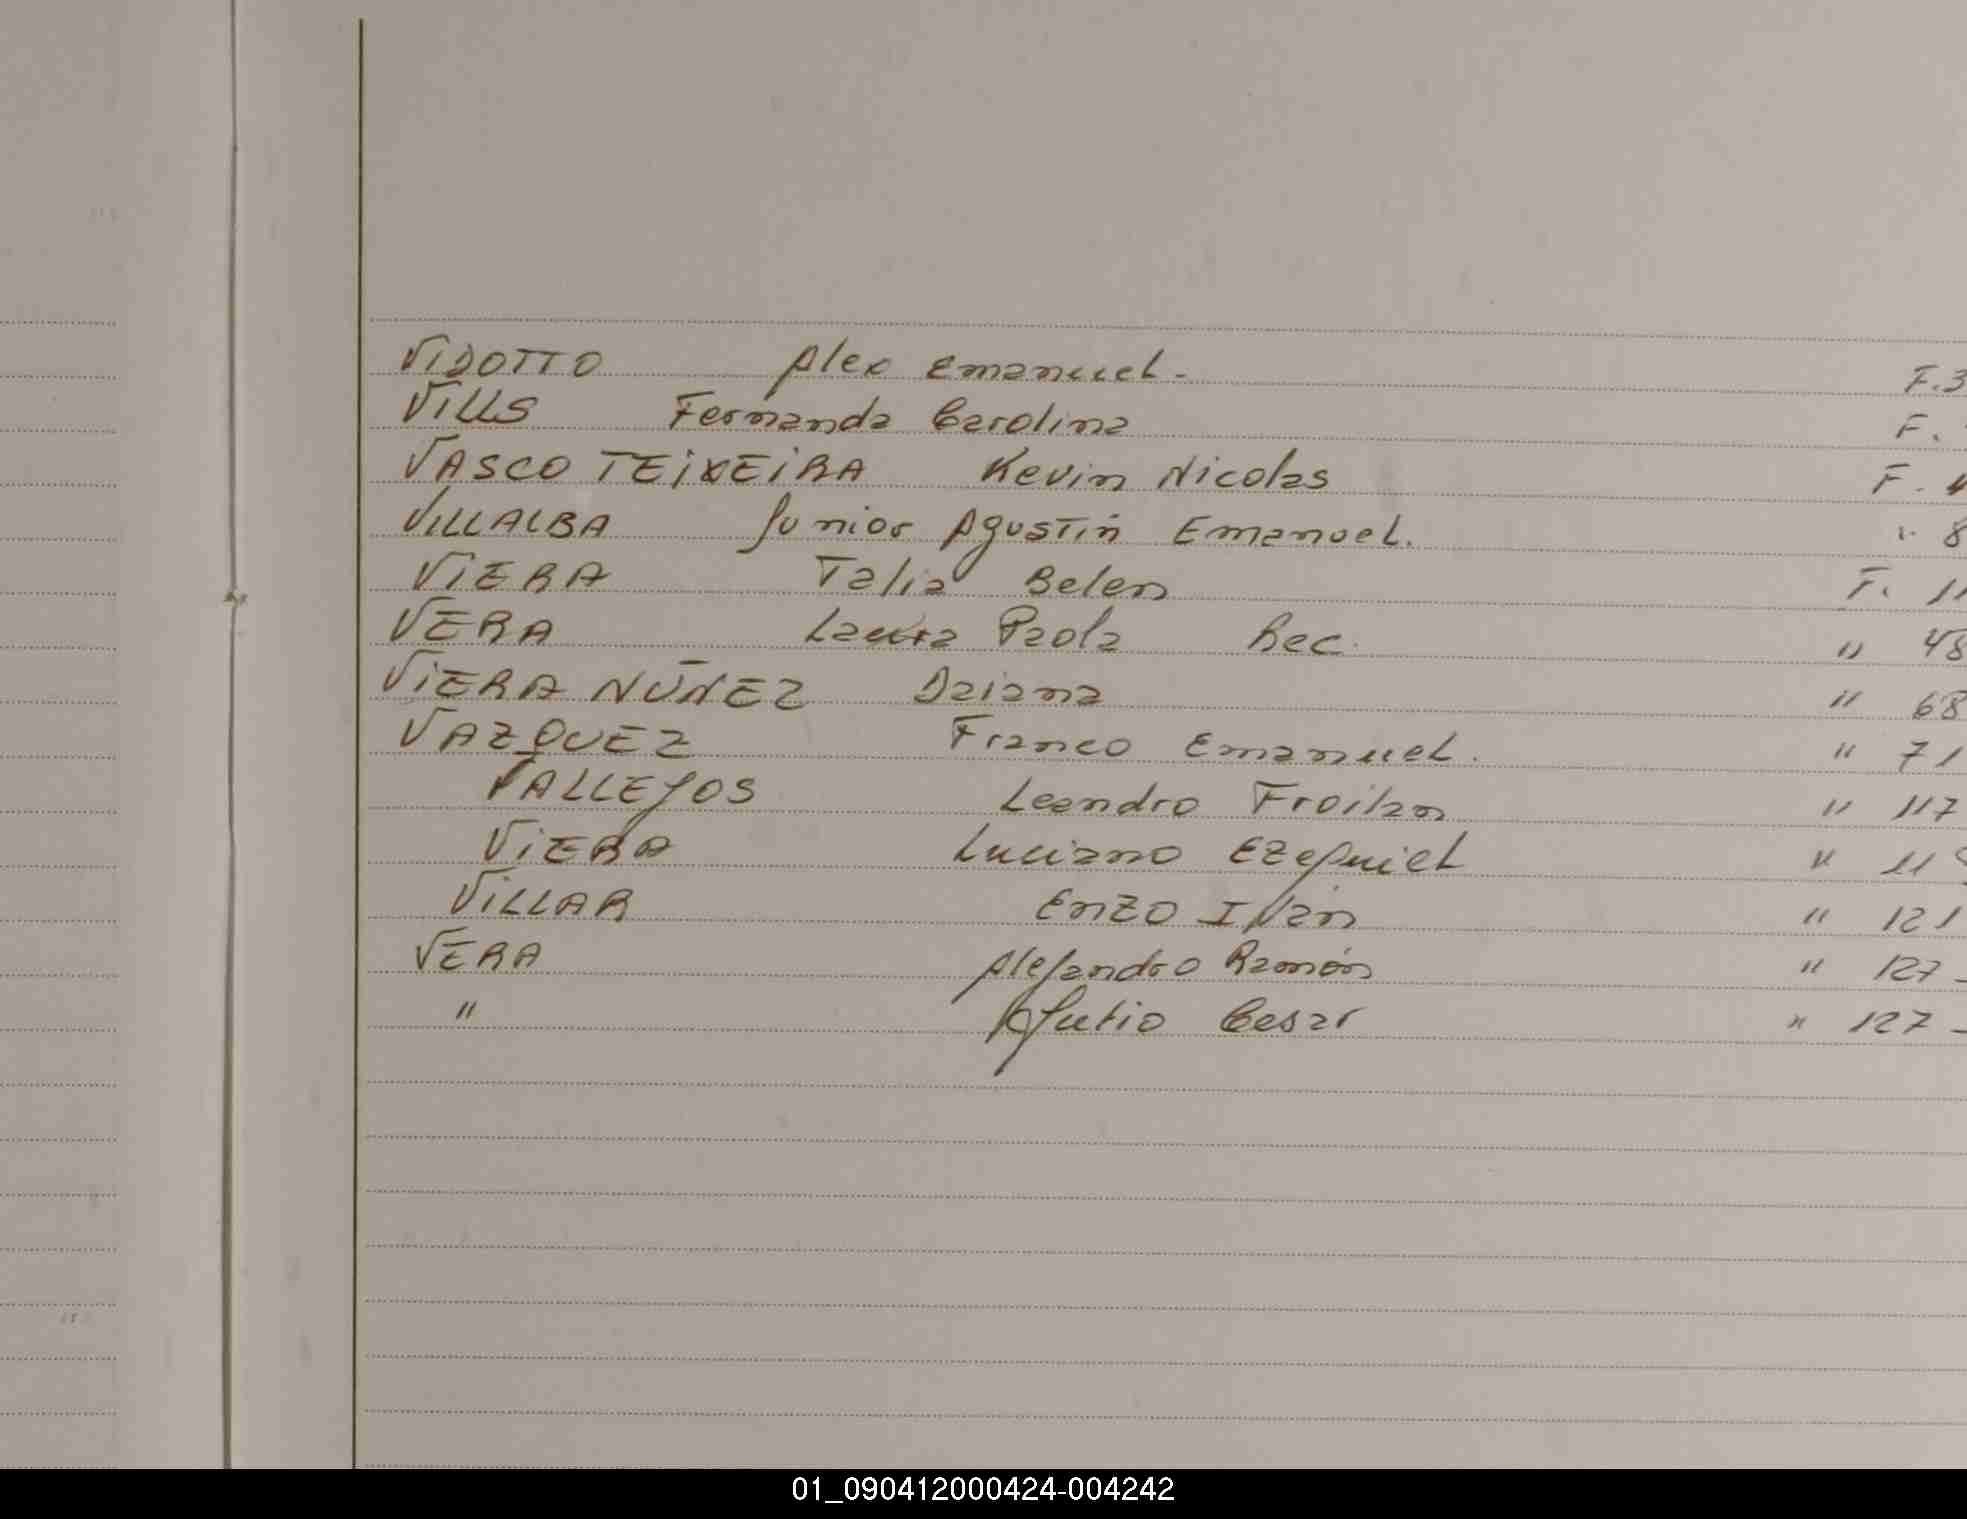 VIDOTTO Alex Emanuel - F. 3
VILLS Fernanda Carolina F.
VASCO TEIXEIRA Kevin Nicolas F.
VILLALBA Junior Agustín Emanuel. " 8
VIERA Talia Belen F. 11
VERA Laura Paola Rec. " 48
VIERA NÚÑEZ Daiana " 68
VAZQUEZ Franco Emanuel. " 71
VALLEJOS Leandro Froilan " 117
VIERA Luciano Ezequiel " 11
VILLAR Enzo Iván " 121
VERA Alejandro Ramón " 127 -
" Julio Cesar " 127 -
01_090412000424-004242